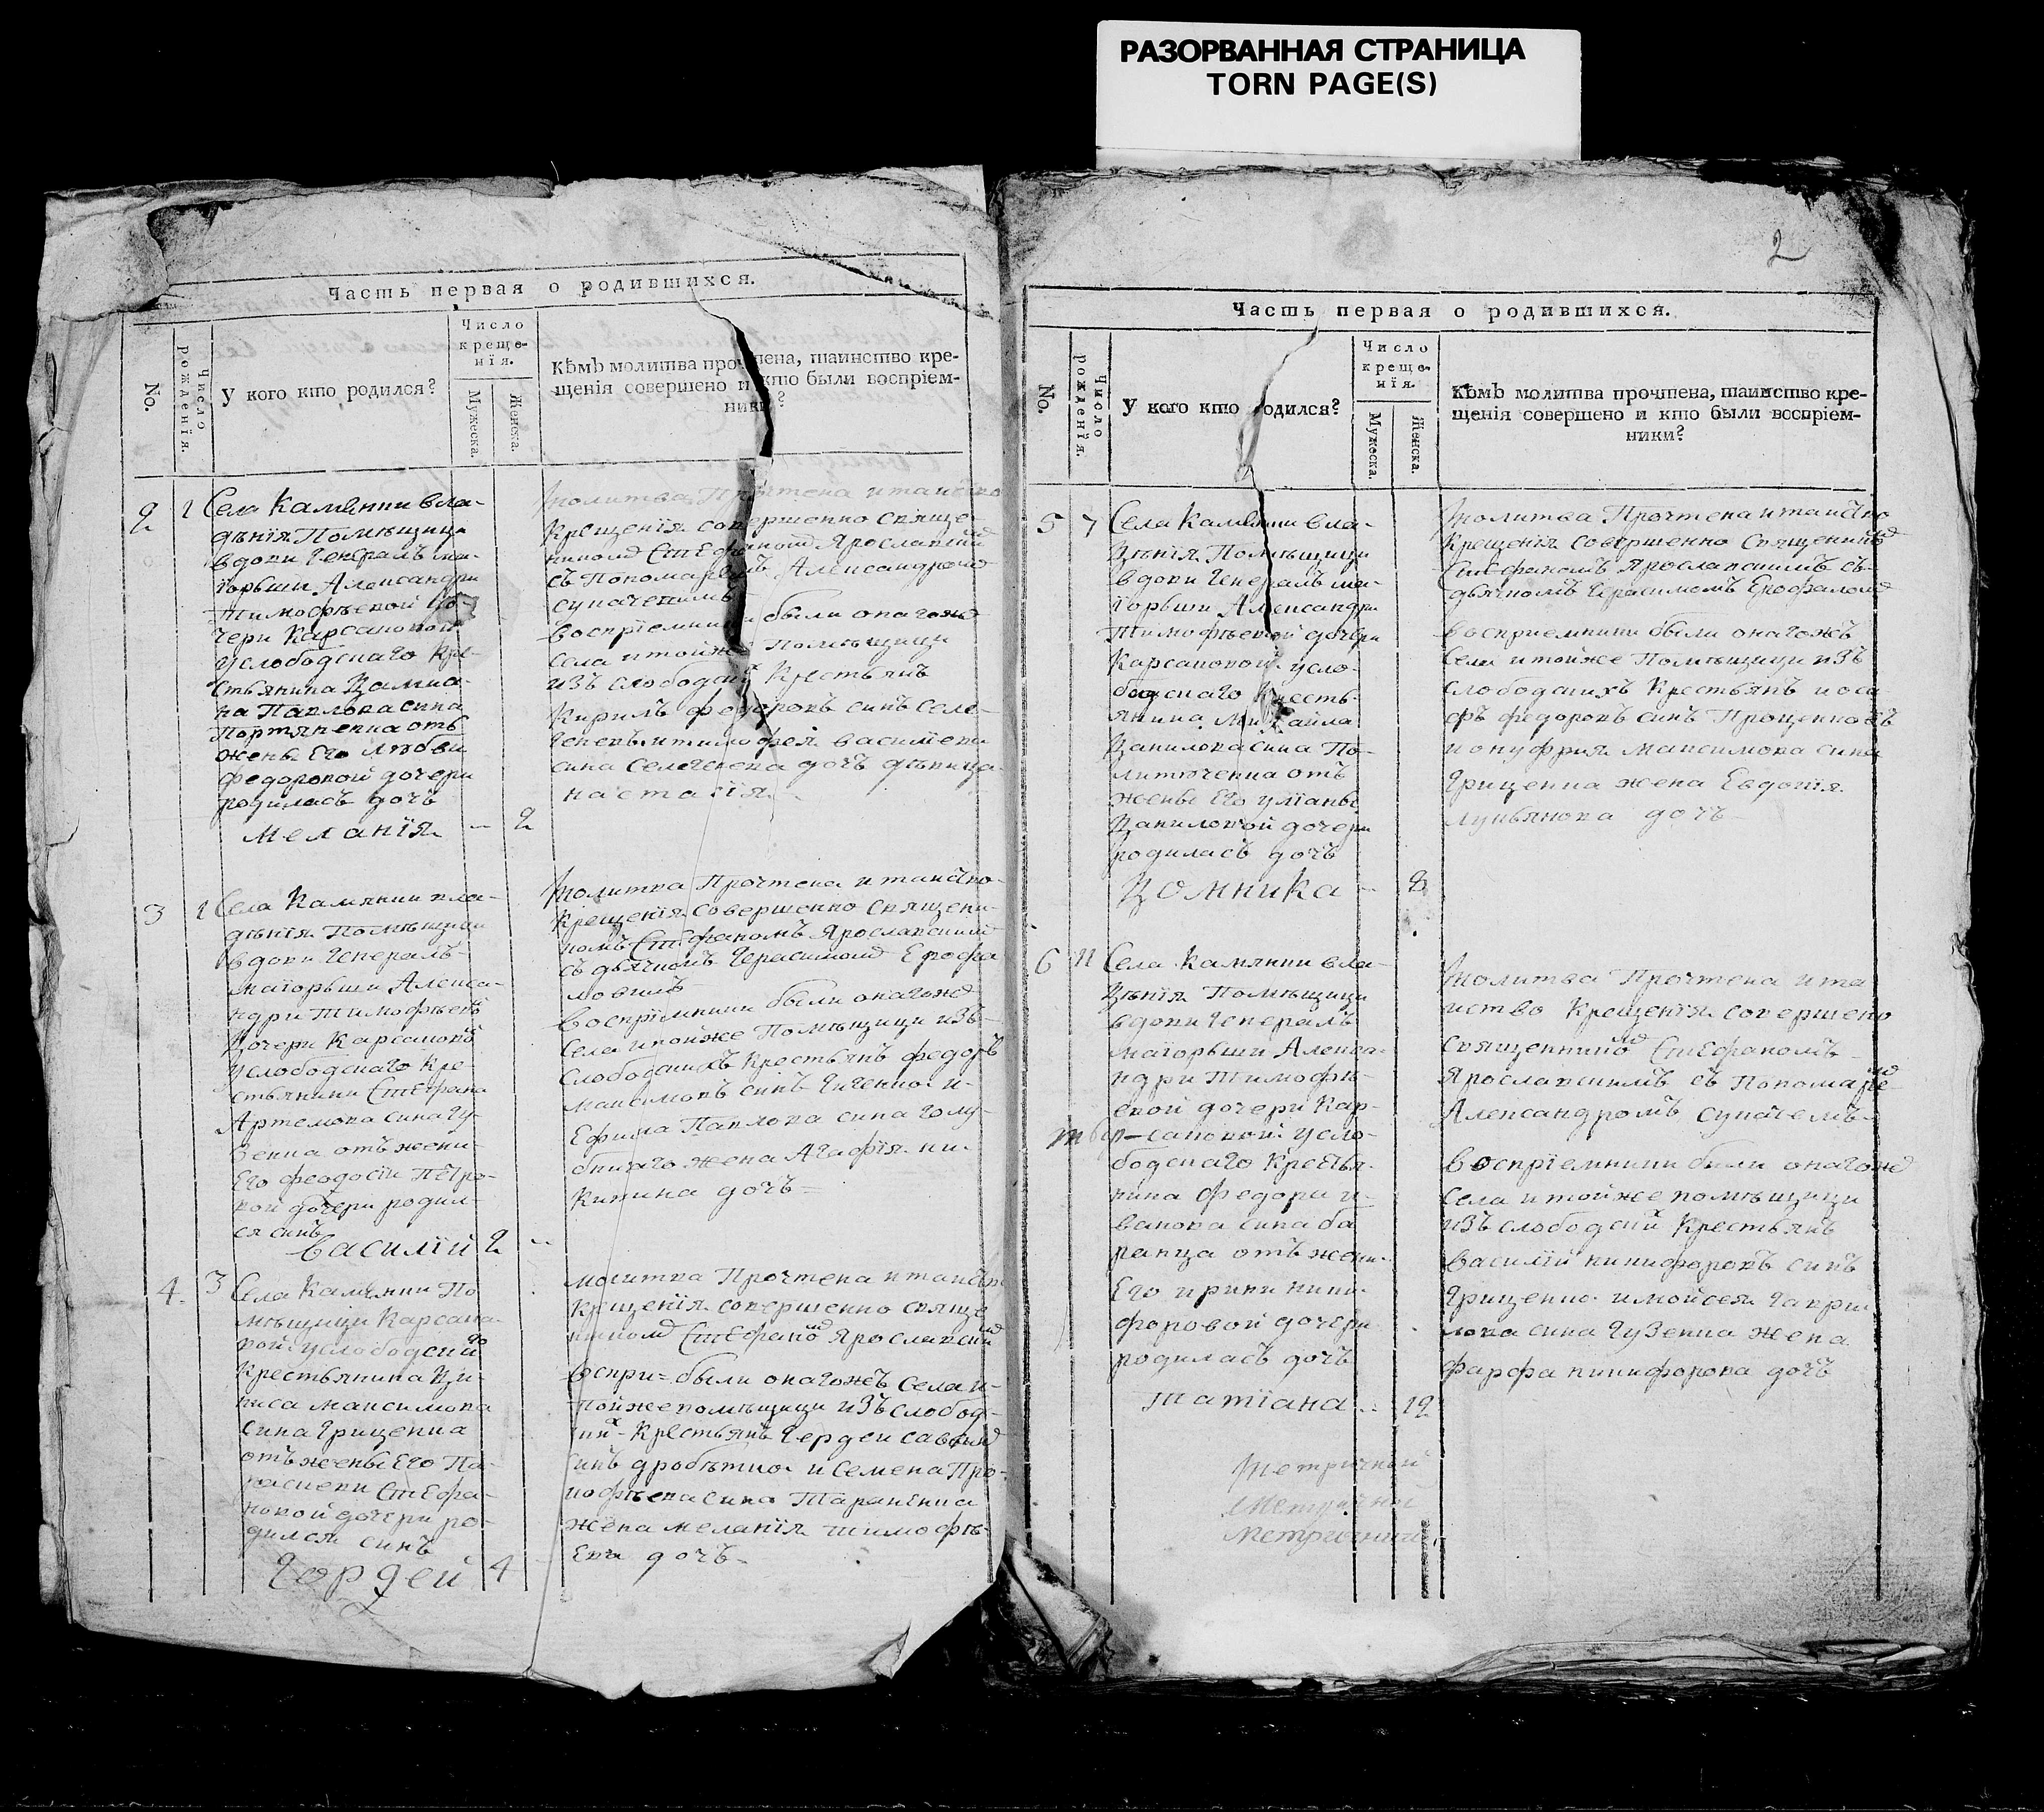 РАЗОРВАННАЯ СТРАНИЦА
TORN PAGE(S)
Часть первая о родившихся.
No.
Число рожденія.
У кого кто родился?
Число
креще-
нія.
Мужеска.
Женска.
Кѣмъ молитва прочтена, таинство кре-
щенія совершено и кто были воспріем-
ники?
2
1
Села Камянки вла-
дѣнія Помѣщици
вдови Генералъ ма-
іорьши Александри
Тимофѣевой до-
чери Карсаковой
услободскаго Кре-
стьянина Даміа-
на Павлова сина
от
жены Его Любви
федоровой дочери
родилась дочь
меланія - 2
Молитва Прочтена и таинство
Крещенія совершенно свяще
никомъ Стефаномъ Ярославскимъ
съ Пономаремъ Александромъ
воспріемники были онагожъ
села и тойже Помѣщици
изъ слободскихъ Крестьянъ
Кирилъ федоровъ синъ Селе-
и тимофея василіева
сина дочь дѣвица
настасія
3
1
Села Камянки вла-
дѣнія Помѣщици
вдови Генералъ-
маіорьши Алекса-
ндри Тимофѣевой
Дочери Карсаковой
услободскаго Кре-
стьянина Стефана
Артемова сина Гу-
зенка отъ жени
Его феодосіи Петро-
вой дочери родил-
ся синъ
василій 2 -
Молитва Прочтена и таинство
Крещенія совершенно священи-
комъ Стефаномъ Ярославскимъ
съ дьячкомъ Герасимомъ Ерофа
воспріемники были онагожъ
Села и тойже Помѣщици изъ
Слободскихъ Крестьянъ федоръ
максимовъ синъ и
Ефима Павлова сина
жена Агафія ни-
китина дочь
4.
3
Села Камянки По
мѣщици Карсако-
вой услободского
Крестьянина Де-
ниса максимова
сина Гриценка
отъ жены Его Па-
раскеви Стефа-
новой дочери ро-
дился синъ
Гордей 4
молитва Прочтена и таинство
Крещенія совершенно свяще
никомъ Стефаномъ Ярославскимъ
воспри= были онагожъ села и
тойже помѣщици изъ слобод-
скихъ Крестьянъ
синъ и Семена Про-
кофѣева сина Тараненка
жена меланія тимофѣ-
ева дочь
2
Часть первая о родившихся.
No.
Число рожденія.
У кого кто родился?
Число
креще-
нія.
Мужеска.
Женска.
Кѣмъ молитва прочтена, таинство кре-
щенія совершено и кто были воспріем-
ники?
5
7
Села Камянки вла-
дѣнія Помѣщици
вдови Генералъ ма-
іорьши Александри
Тимофѣевой дочери
Карсаковой усло-
бодскаго Кресть-
янина Михайла
Данилова сина По-
литюченка отъ
жены Его уліаны
Даниловой дочери
родилась дочь
Домника - 8
Молитва Прочтена и таинство
Крещенія совершенно Священикомъ
Стефаномъ Ярославскимъ съ
дьячкомъ Герасимомъ
восприемники были онагожъ
Села и тойже Помѣщици изъ
слободскихъ Крестьянъ иоси
фъ федоровъ синъ Проценковъ
и онуфрия максимова сина
Гриценка жена Евдокія
лукьянова дочь
6
11
Села Камянки вла-
дѣнія Помѣщици
вдови Генералъ
маіорьши Алекса-
ндри Тимофѣ-
евой дочери Кар-
саковой усло-
бодскаго Крестья-
нина федора и-
ванова сина ба
ранца отъ жени
Его ирини ники-
форовой дочери
родилась дочь
татіана 12
Молитва Прочтена и таи
нство Крещенія совершено
священникомъ Стефаномъ
Ярославскимъ съ Пономаремъ
Александромъ
воспріемники были онагожъ
села и тойже помѣщици
изъ слободскихъ Крестьянъ
василій никифоровъ синъ
Гриценко и мойсея Гаври
лова сина Гузенка жена
фарфа никифорова дочь
Метричний
Метричний
Метричний